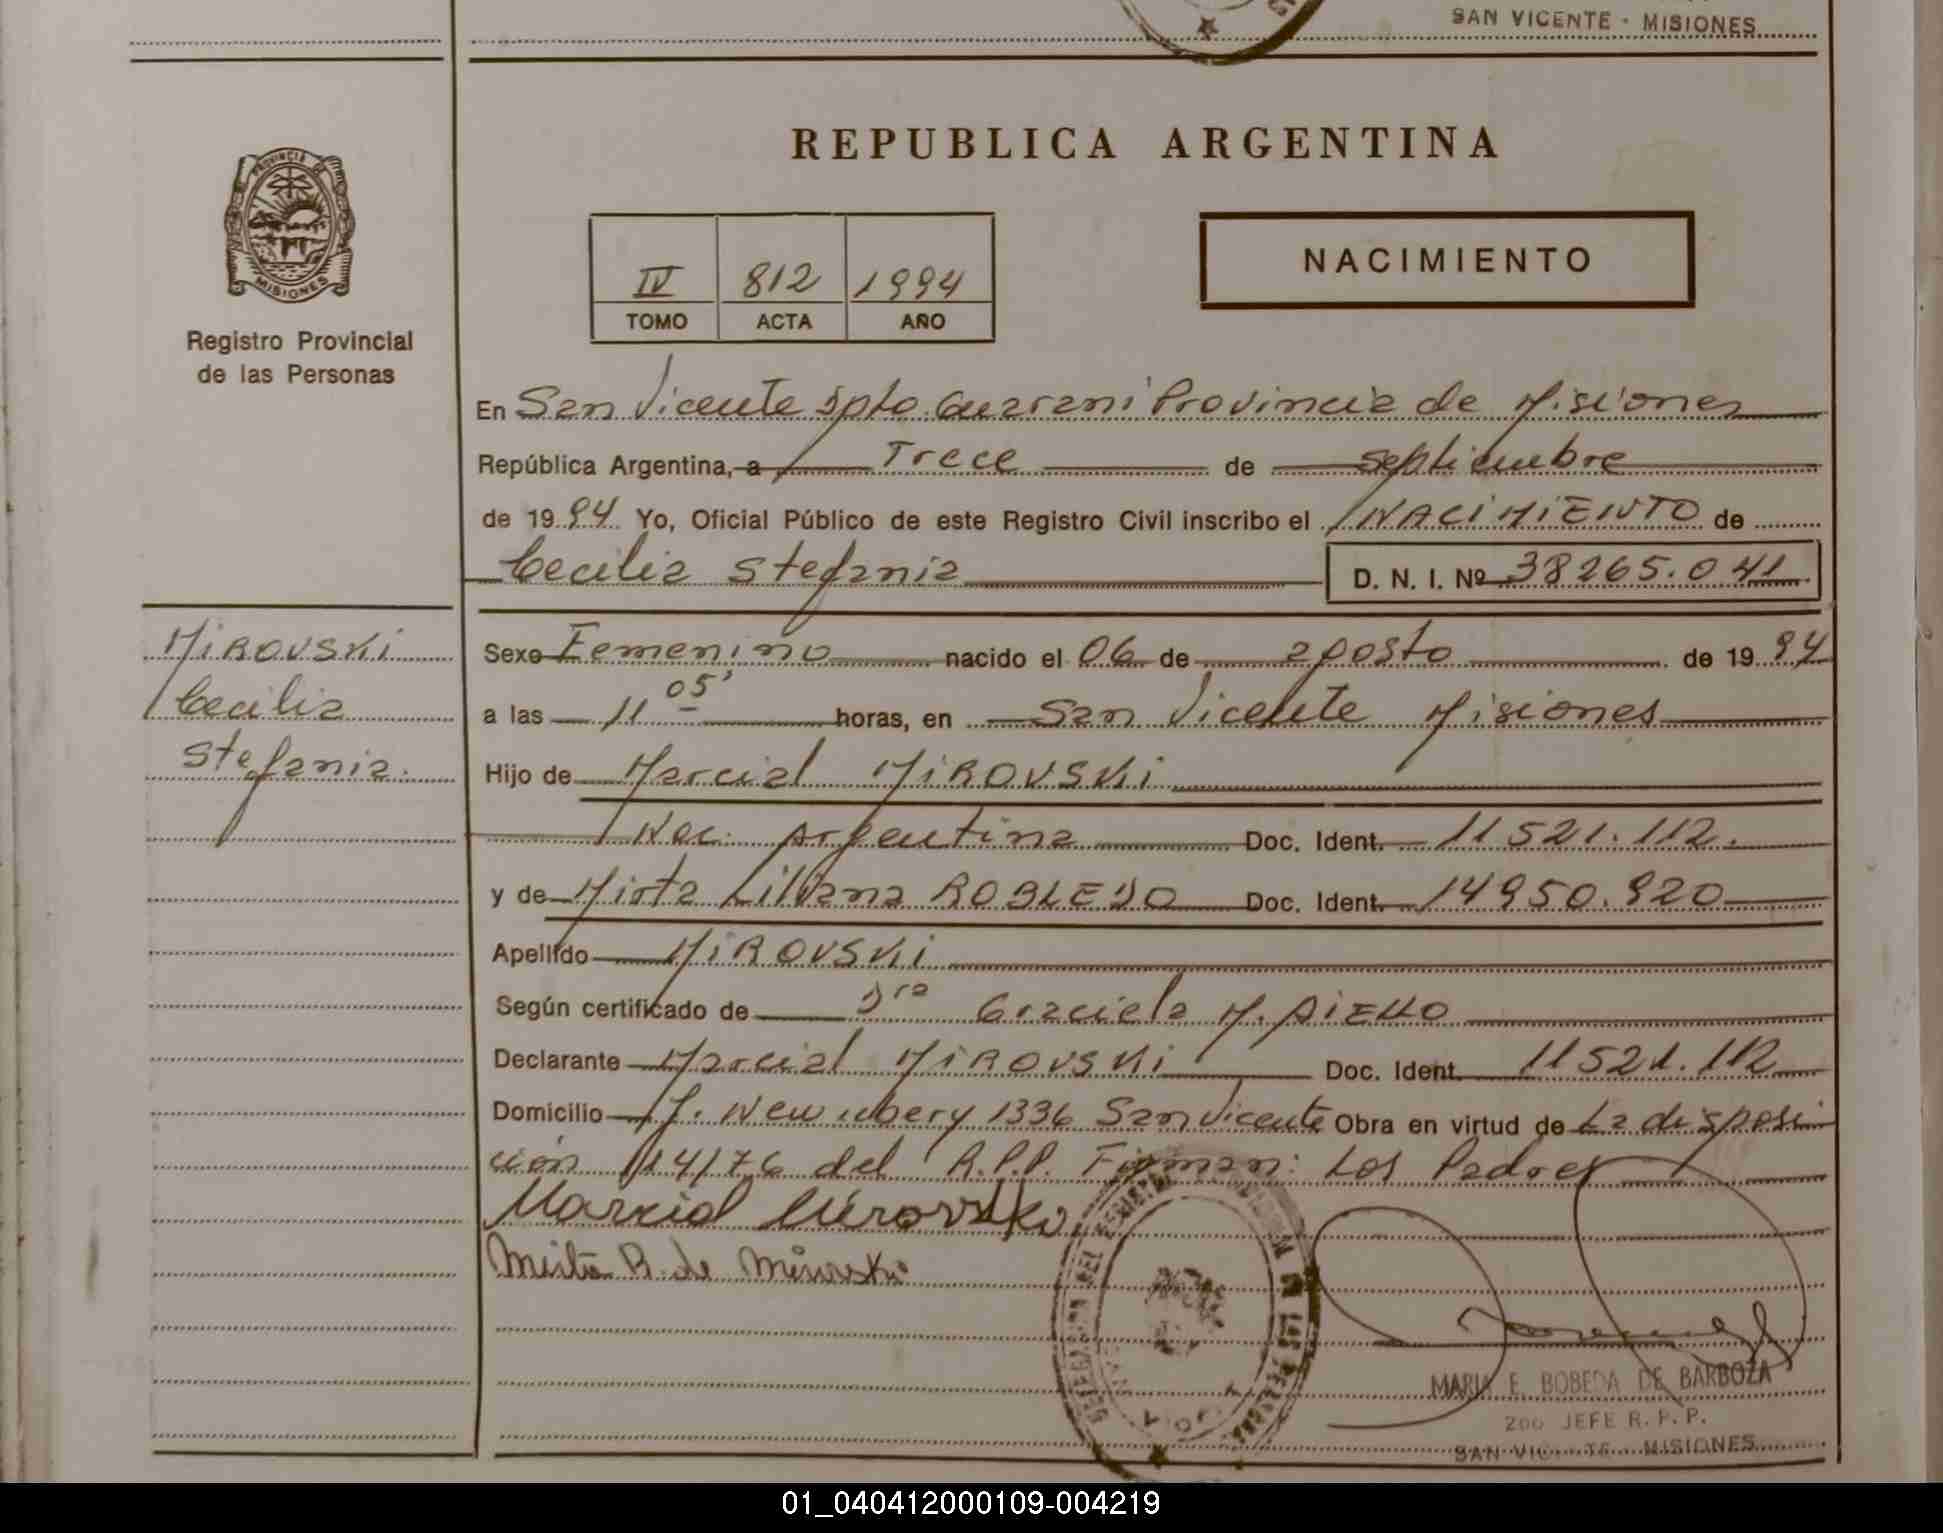 SAN VICENTE - MISIONES
REPUBLICA ARGENTINA
PROVINCIA
MISIONES
Registro Provincial
de las Personas
IV 812 1994
TOMO ACTA AÑO
NACIMIENTO
En San Vicente Dpto. Guarani Provincia de Misiones
República Argentina, a Trece de septiembre
de 1994 Yo, Oficial Público de este Registro Civil inscribo el NACIMIENTO de
Cecilia Stefania D. N. I. Nº 38265.041
MIROVSKI
Cecilia
Stefania.
Sexo Femenino nacido el 06 de agosto de 1994
a las 11 05' horas, en San Vicente Misiones
Hijo de Marcial MIROVSKI
Nac. Argentina Doc. Ident. 11521.112.
y de Mirta Liliana ROBLEDO Doc. Ident. 14950.920
Apellido MIROVSKI
Según certificado de Dra Graciela M. AIELLO
Declarante Marcial MIROVSKI Doc. Ident. 11521.112
Domicilio J. Newubery 1336 San Vicente Obra en virtud de La disposi
ción 114/76 del R.P.P. Firman: Los Padres
Marcial Mirovski
Mirta R. de Mirovski
MARIA E. BOBEDA DE BARBOZA
2do JEFE R. P. P.
SAN VICENTE - MISIONES
01_040412000109-004219